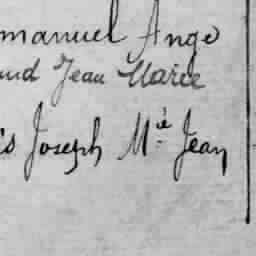 mmanuel Ange
and Jean Marie
is Joseph M.ie Jean